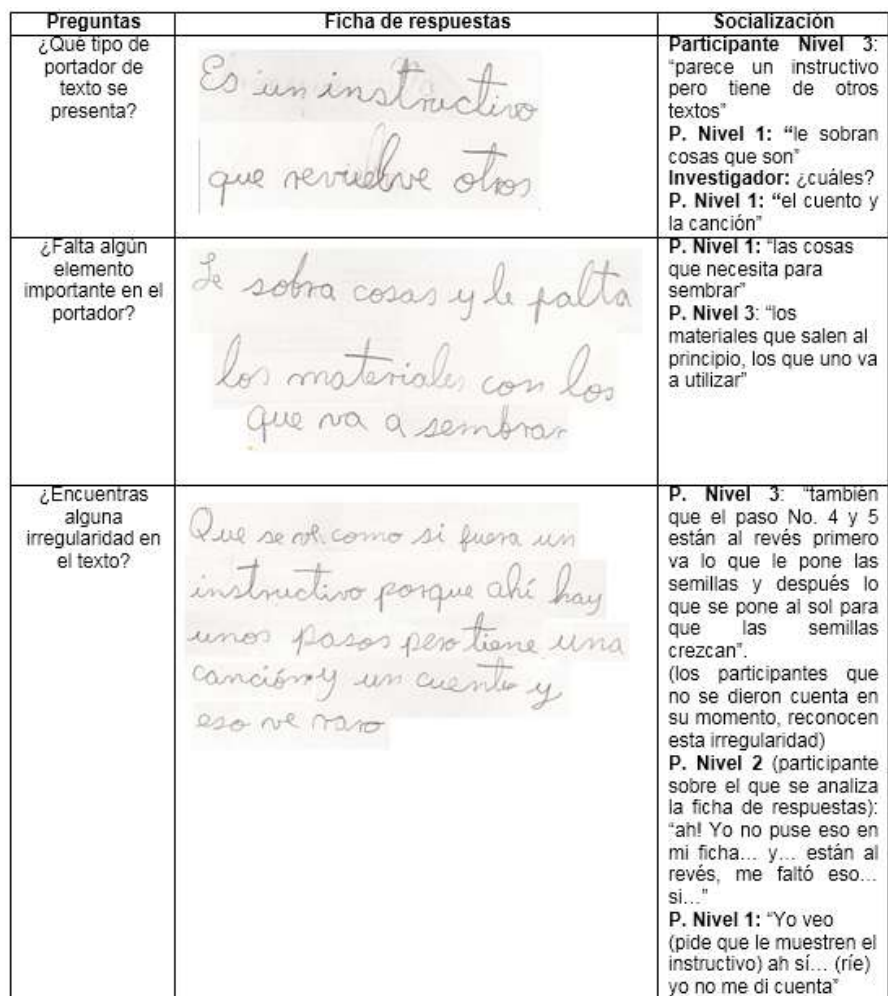 Preguntas Ficha de respuestas Socialización
¿Qué tipo de
portador de
texto se
presenta?
Es un instructivo
que revuelve otros
Participante Nivel 3:
“parece un instructivo
pero tiene de otros
textos”
P. Nivel 1: “le sobran
cosas que son”
Investigador: ¿cuáles?
P. Nivel 1: “el cuento y
la canción”
¿Falta algún
elemento
importante en el
portador?
Le sobra cosas y le falta
los materiales con los
que va a sembrar
P. Nivel 1: “las cosas
que necesita para
sembrar”
P. Nivel 3: “los
materiales que salen al
principio, los que uno va
a utilizar”
¿Encuentras
alguna
irregularidad en
el texto?
Que se ve como si fuera un
instructivo porque ahí hay
unos pasos pero tiene una
canción y un cuento y
eso ve raro
P. Nivel 3: “también
que el paso No. 4 y 5
están al revés primero
va lo que le pone las
semillas y después lo
que se pone al sol para
que las semillas
crezcan”.
(los participantes que
no se dieron cuenta en
su momento, reconocen
esta irregularidad)
P. Nivel 2 (participante
sobre el que se analiza
la ficha de respuestas):
“ah! Yo no puse eso en
mi ficha… y… están al
revés, me faltó eso…
si…”
P. Nivel 1: “Yo veo
(pide que le muestren el
instructivo) ah sí… (ríe)
yo no me di cuenta”